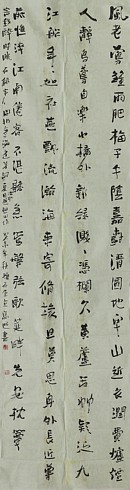 風老鶯雛雨肥梅子午陰嘉樹清圓地卑山近衣潤費爐煙
人靜烏鳶自樂小橋外新綠濺濺憑欄久黃蘆苦竹疑泛九
江船年年如社燕飄流瀚海來寄修椽且莫思身外長近尊
前憔悴江南倦客不堪聽急管繁弦歌筵畔先安枕簟
容我醉時眠